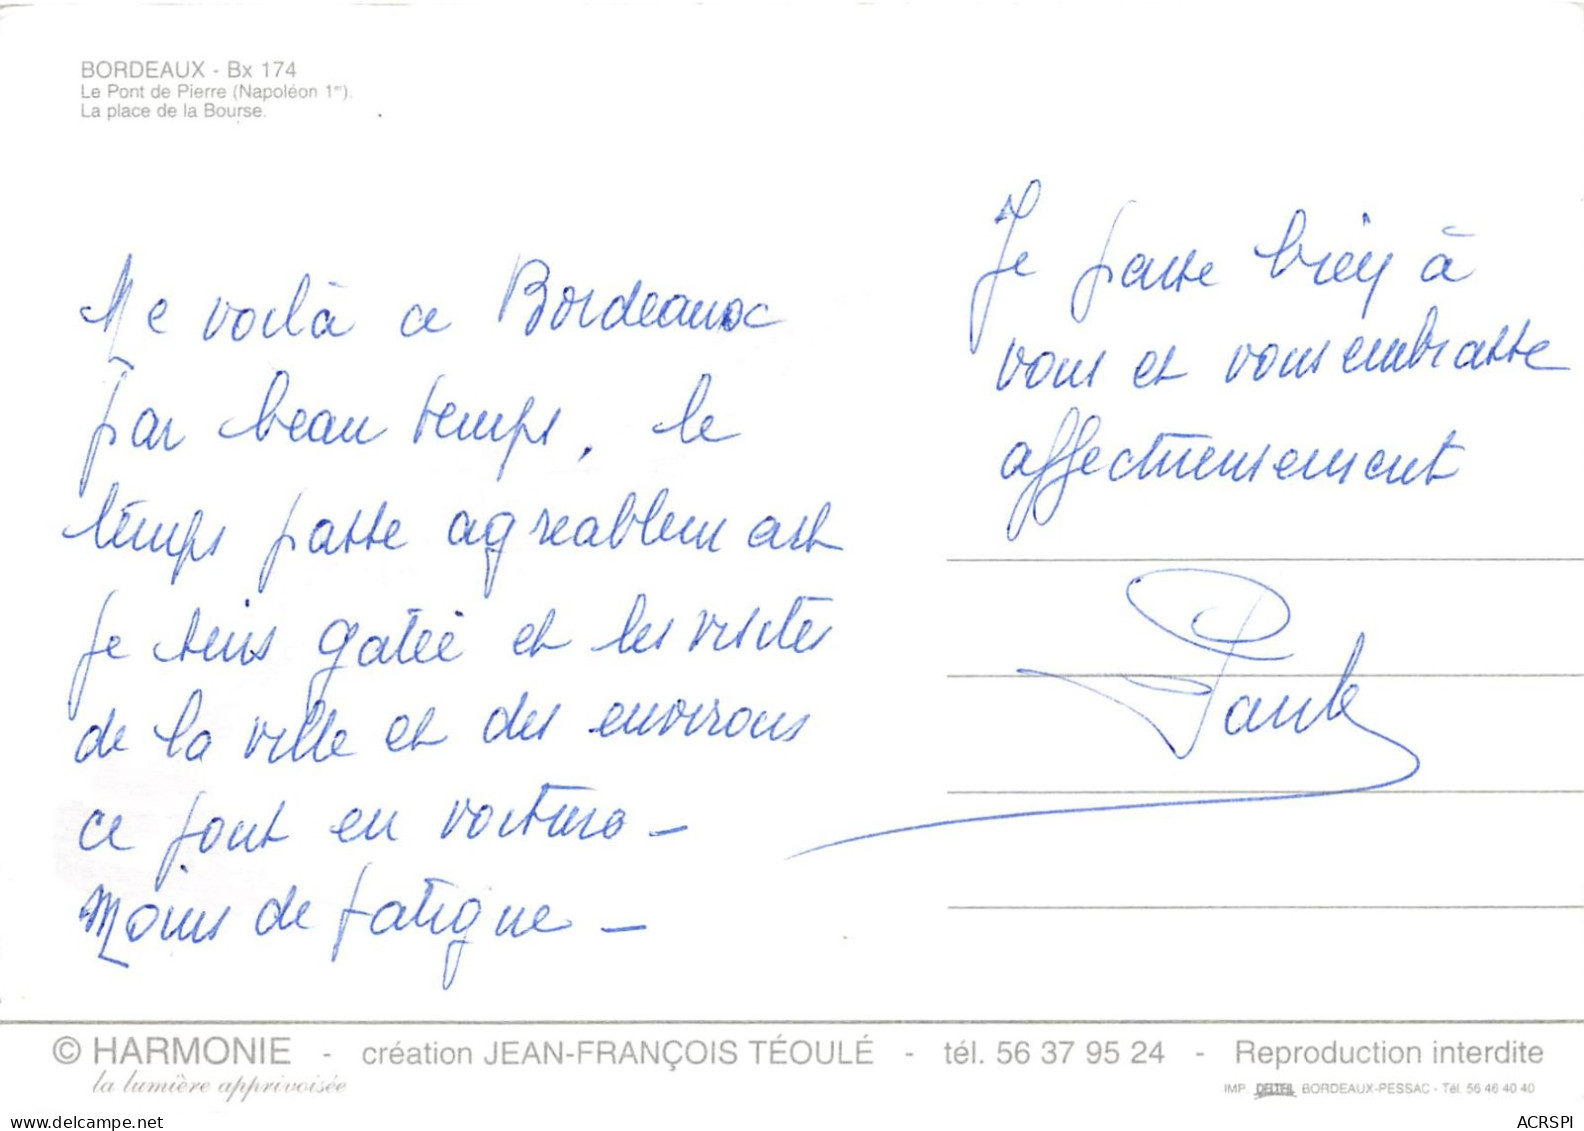 BORDEAUX - Bx 174
Le Pont de Pierre (Napoléon 1er).
La place de la Bourse.
Me voilà a Bordeaux
par beau temps. le
temps passe agreablement
je suis gatée et les visites
de la ville et des environs
ce font en voiture –
Moins de fatigue –
Je pense bien à
vous et vous embrasse
affectueusement
Paule
© HARMONIE - création JEAN-FRANÇOIS TÉOULÉ - tél. 56 37 95 24 - Reproduction interdite
la lumière apprivoisée
IMP. DELTEIL BORDEAUX-PESSAC - Tél. 56 46 40 40
delcampe.net
ACRSPI